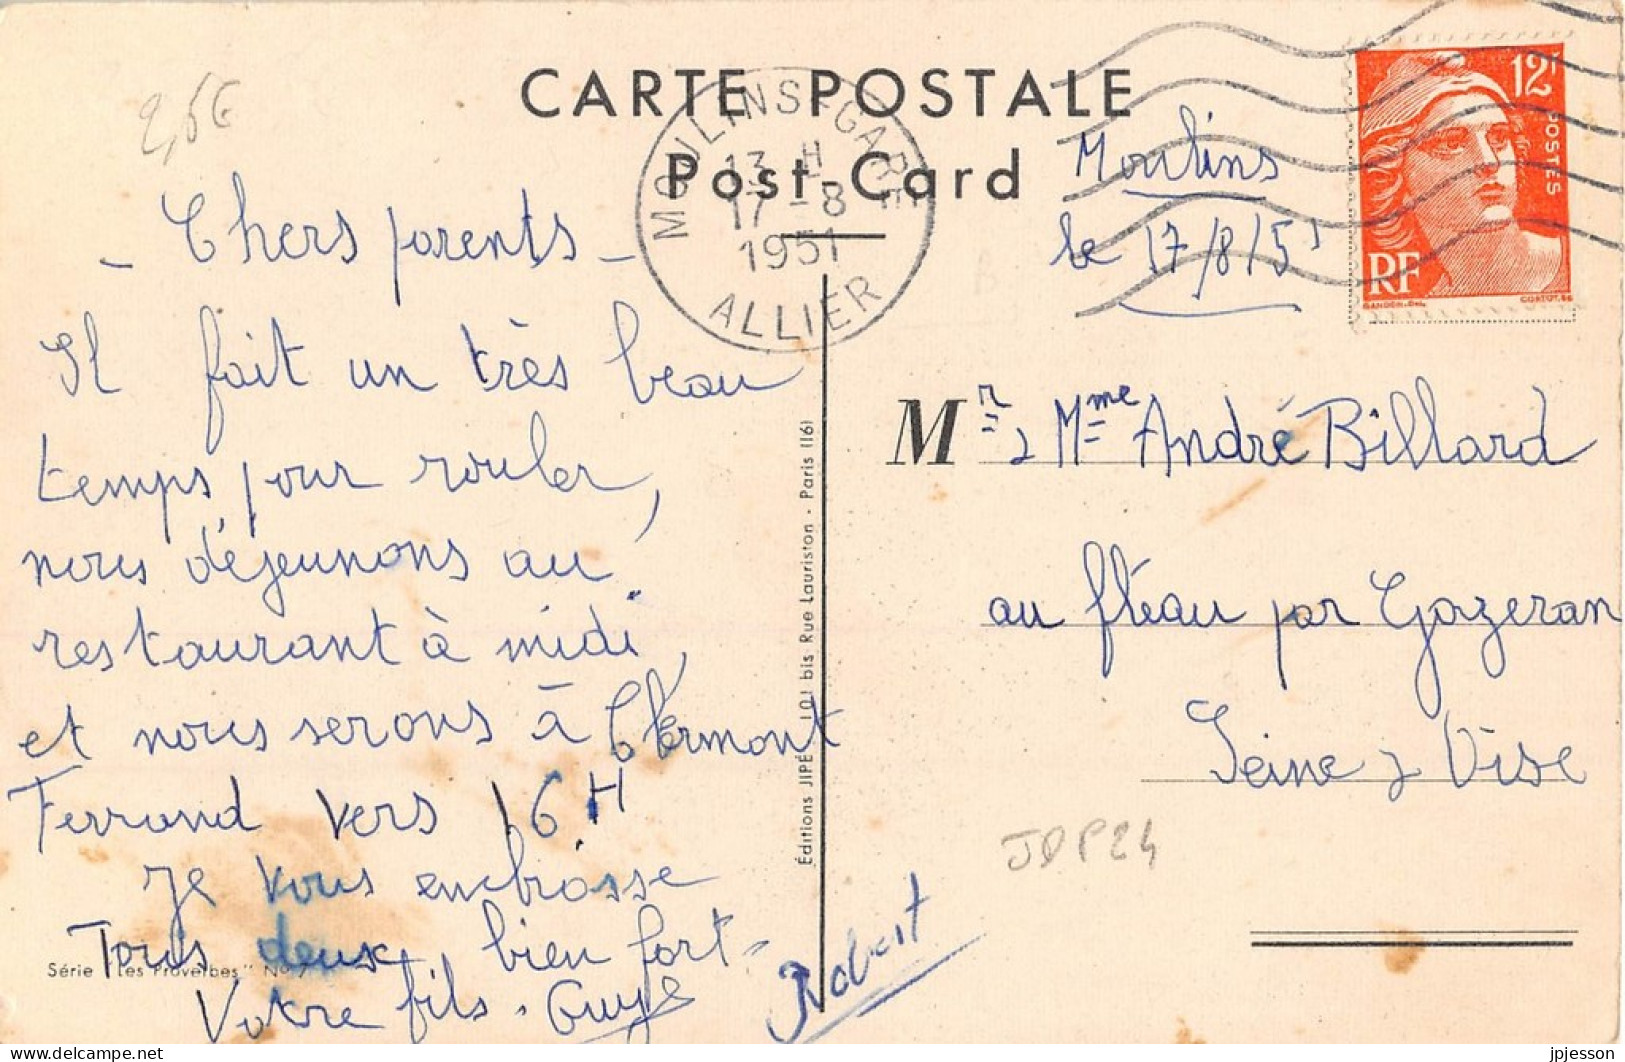 2,5€
CARTE POSTALE
Post-Card
MOULINS-GARE
13 H
17 - 8
1951
ALLIER
12F
POSTES
RF
GANDON.Del.
CORTOT.sc
Moulins
le 17/8/51
- Chers parents -
Il fait un très beau
temps pour rouler,
nous déjeunons au
restaurant à midi,
et nous serons à Clermont
Ferrand vers 16H
Je vous embrasse
Tous deux bien fort -
Votre fils. Guy
Robert
Série "Les Proverbes" N° 7
Éditions JIPÉ 101 bis Rue Lauriston - Paris (16)
Mr & Mme André Billard
au fléau par Gazeran
Seine & Oise
JPP24
delcampe.net
jpjesson